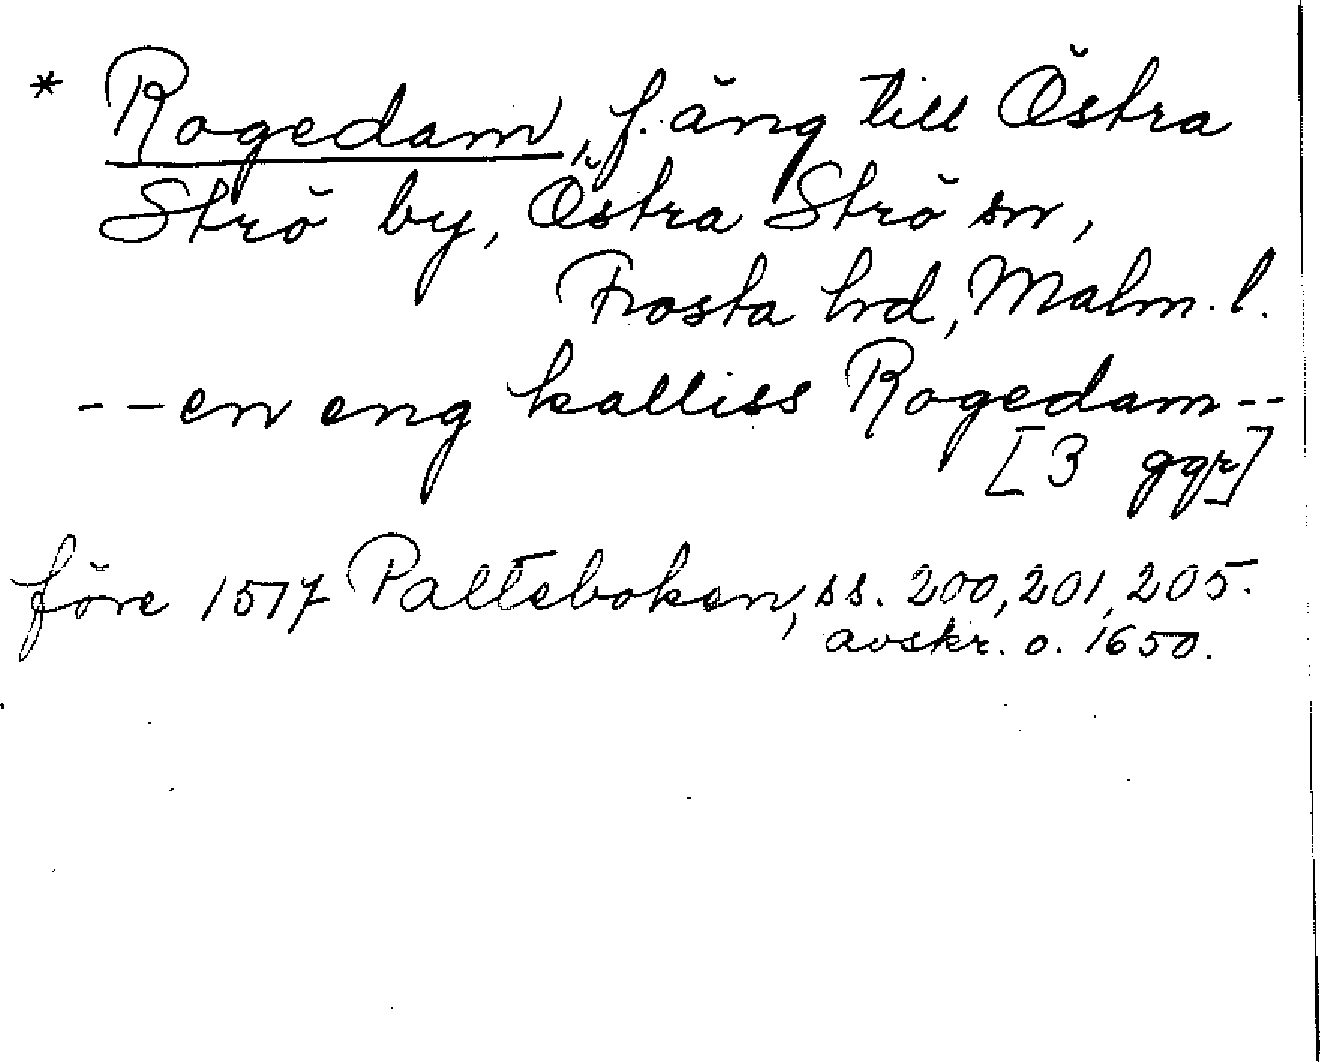 * Rogedam, f. äng till Östra
Strö by, Östra Strö sn,
Frosta hrd, Malm. l.
--en eng kalliss Rogedam--
[3 ggr]
före 1517 Palteboken, ss. 200, 201, 205.
avskr. o. 1650.